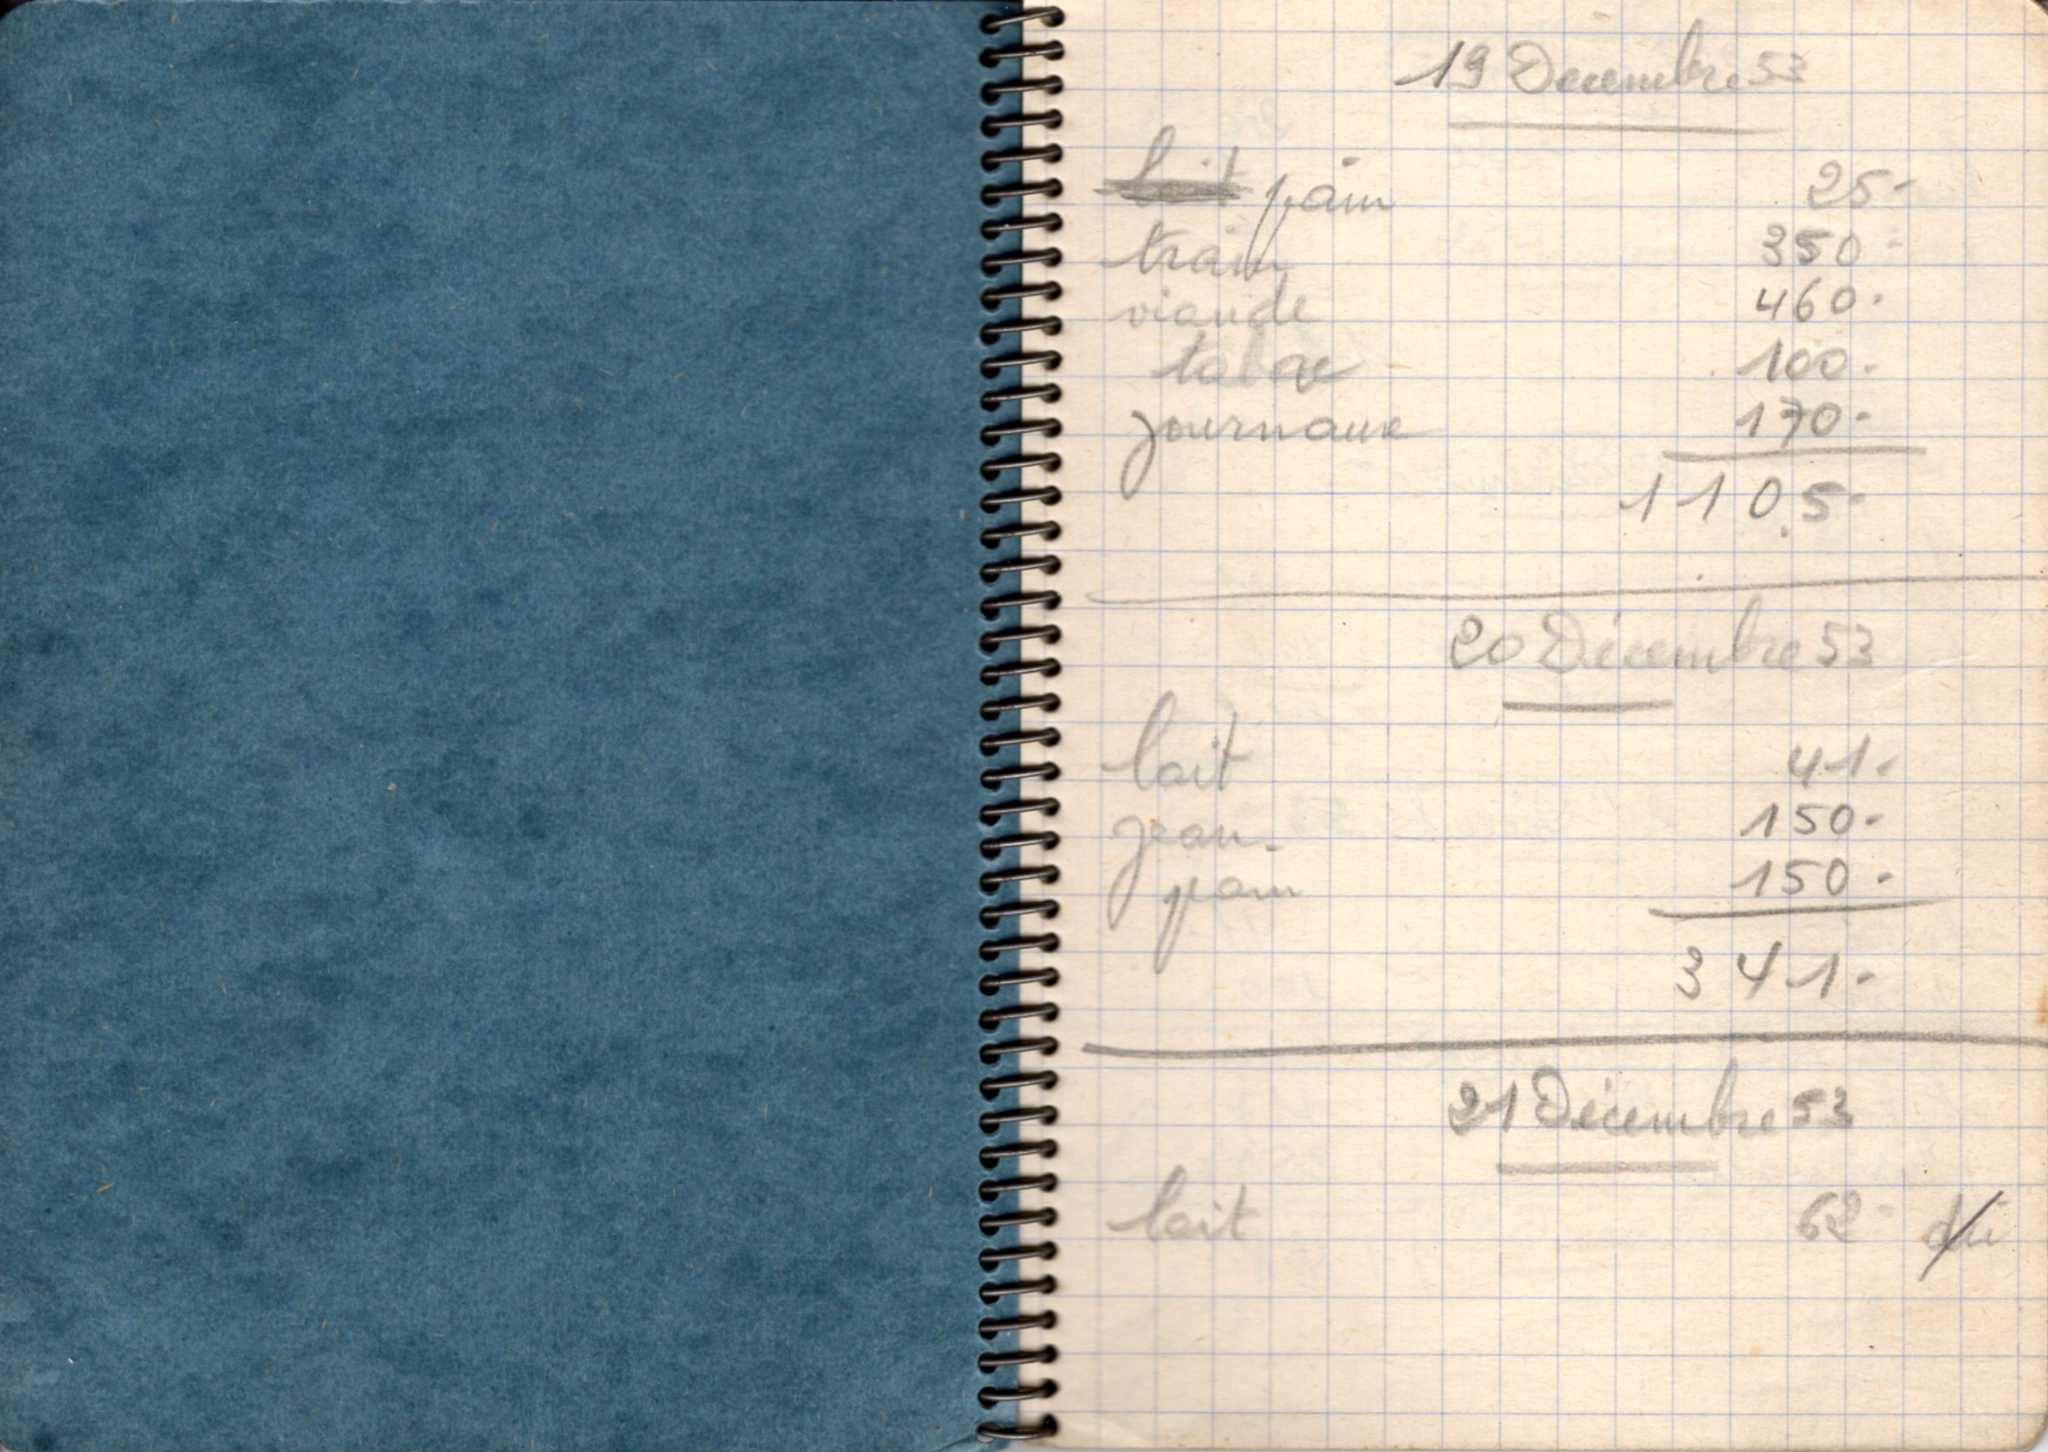 19 Décembre 53
lait pain 25-
train 350-
viande 460-
tabac 100-
journaux 170-
1105-
20 Décembre 53
lait 41-
Jean. 150-
pain 150-
341-
21 Décembre 53
lait 62- dû